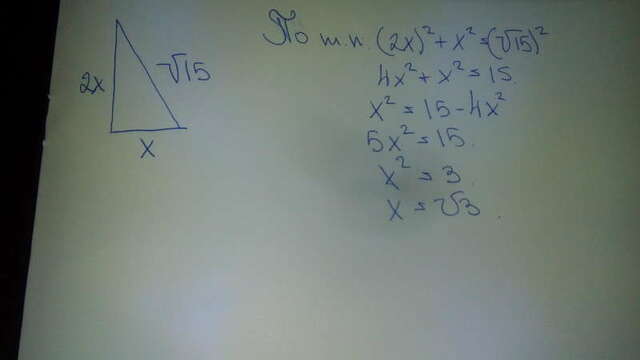 2x
√15
x
По т.п. (2x)² + x² = (√15)²
4x² + x² = 15.
x² = 15 - 4x²
5x² = 15.
x² = 3.
x = √3.